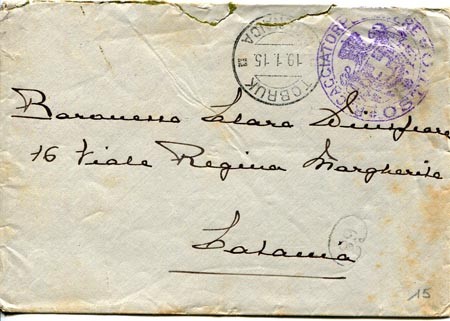 TOBRUK
19.1.15.
CACCIATORPEDINIERE
Baronessa Clara
16 Viale Regina Margherita
Catania
15